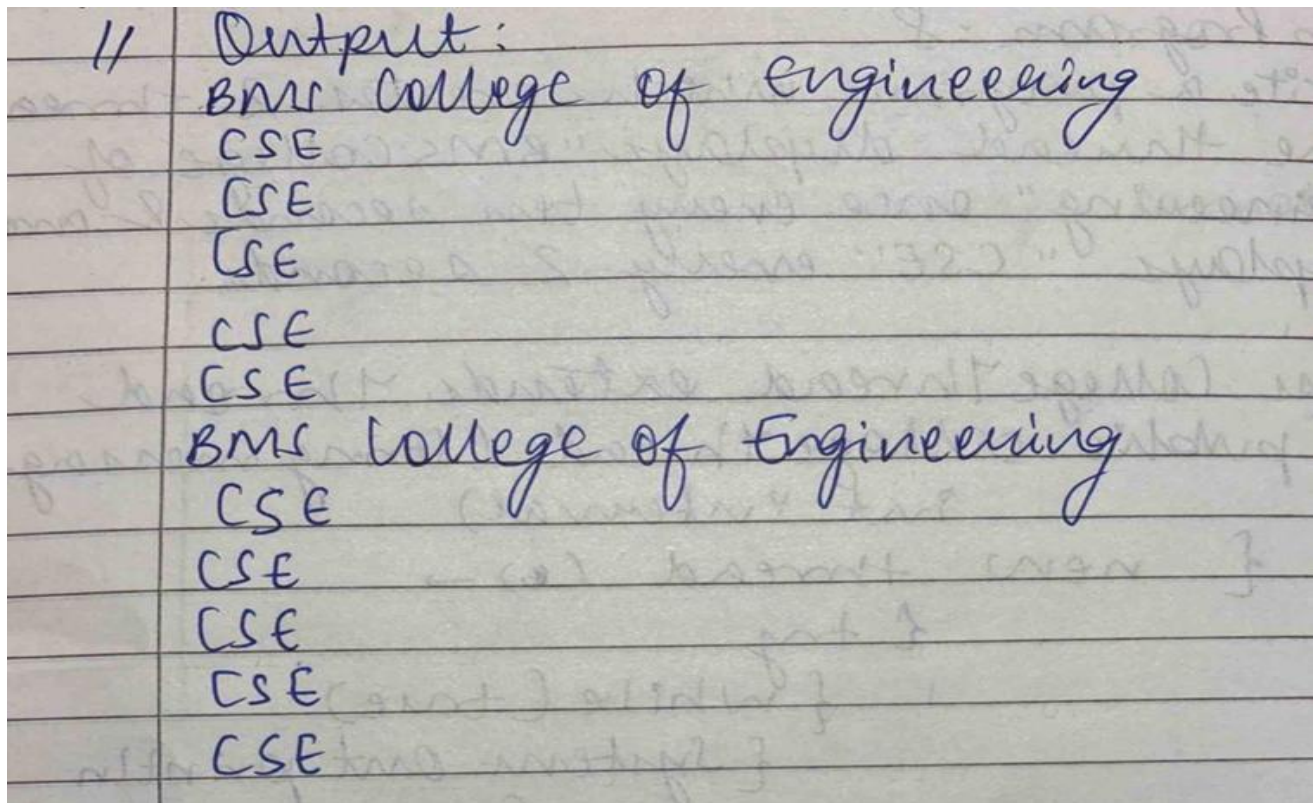 // Output:
BMS College of Engineering
CSE
CSE
CSE
CSE
CSE
BMS College of Engineering
CSE
CSE
CSE
CSE
CSE